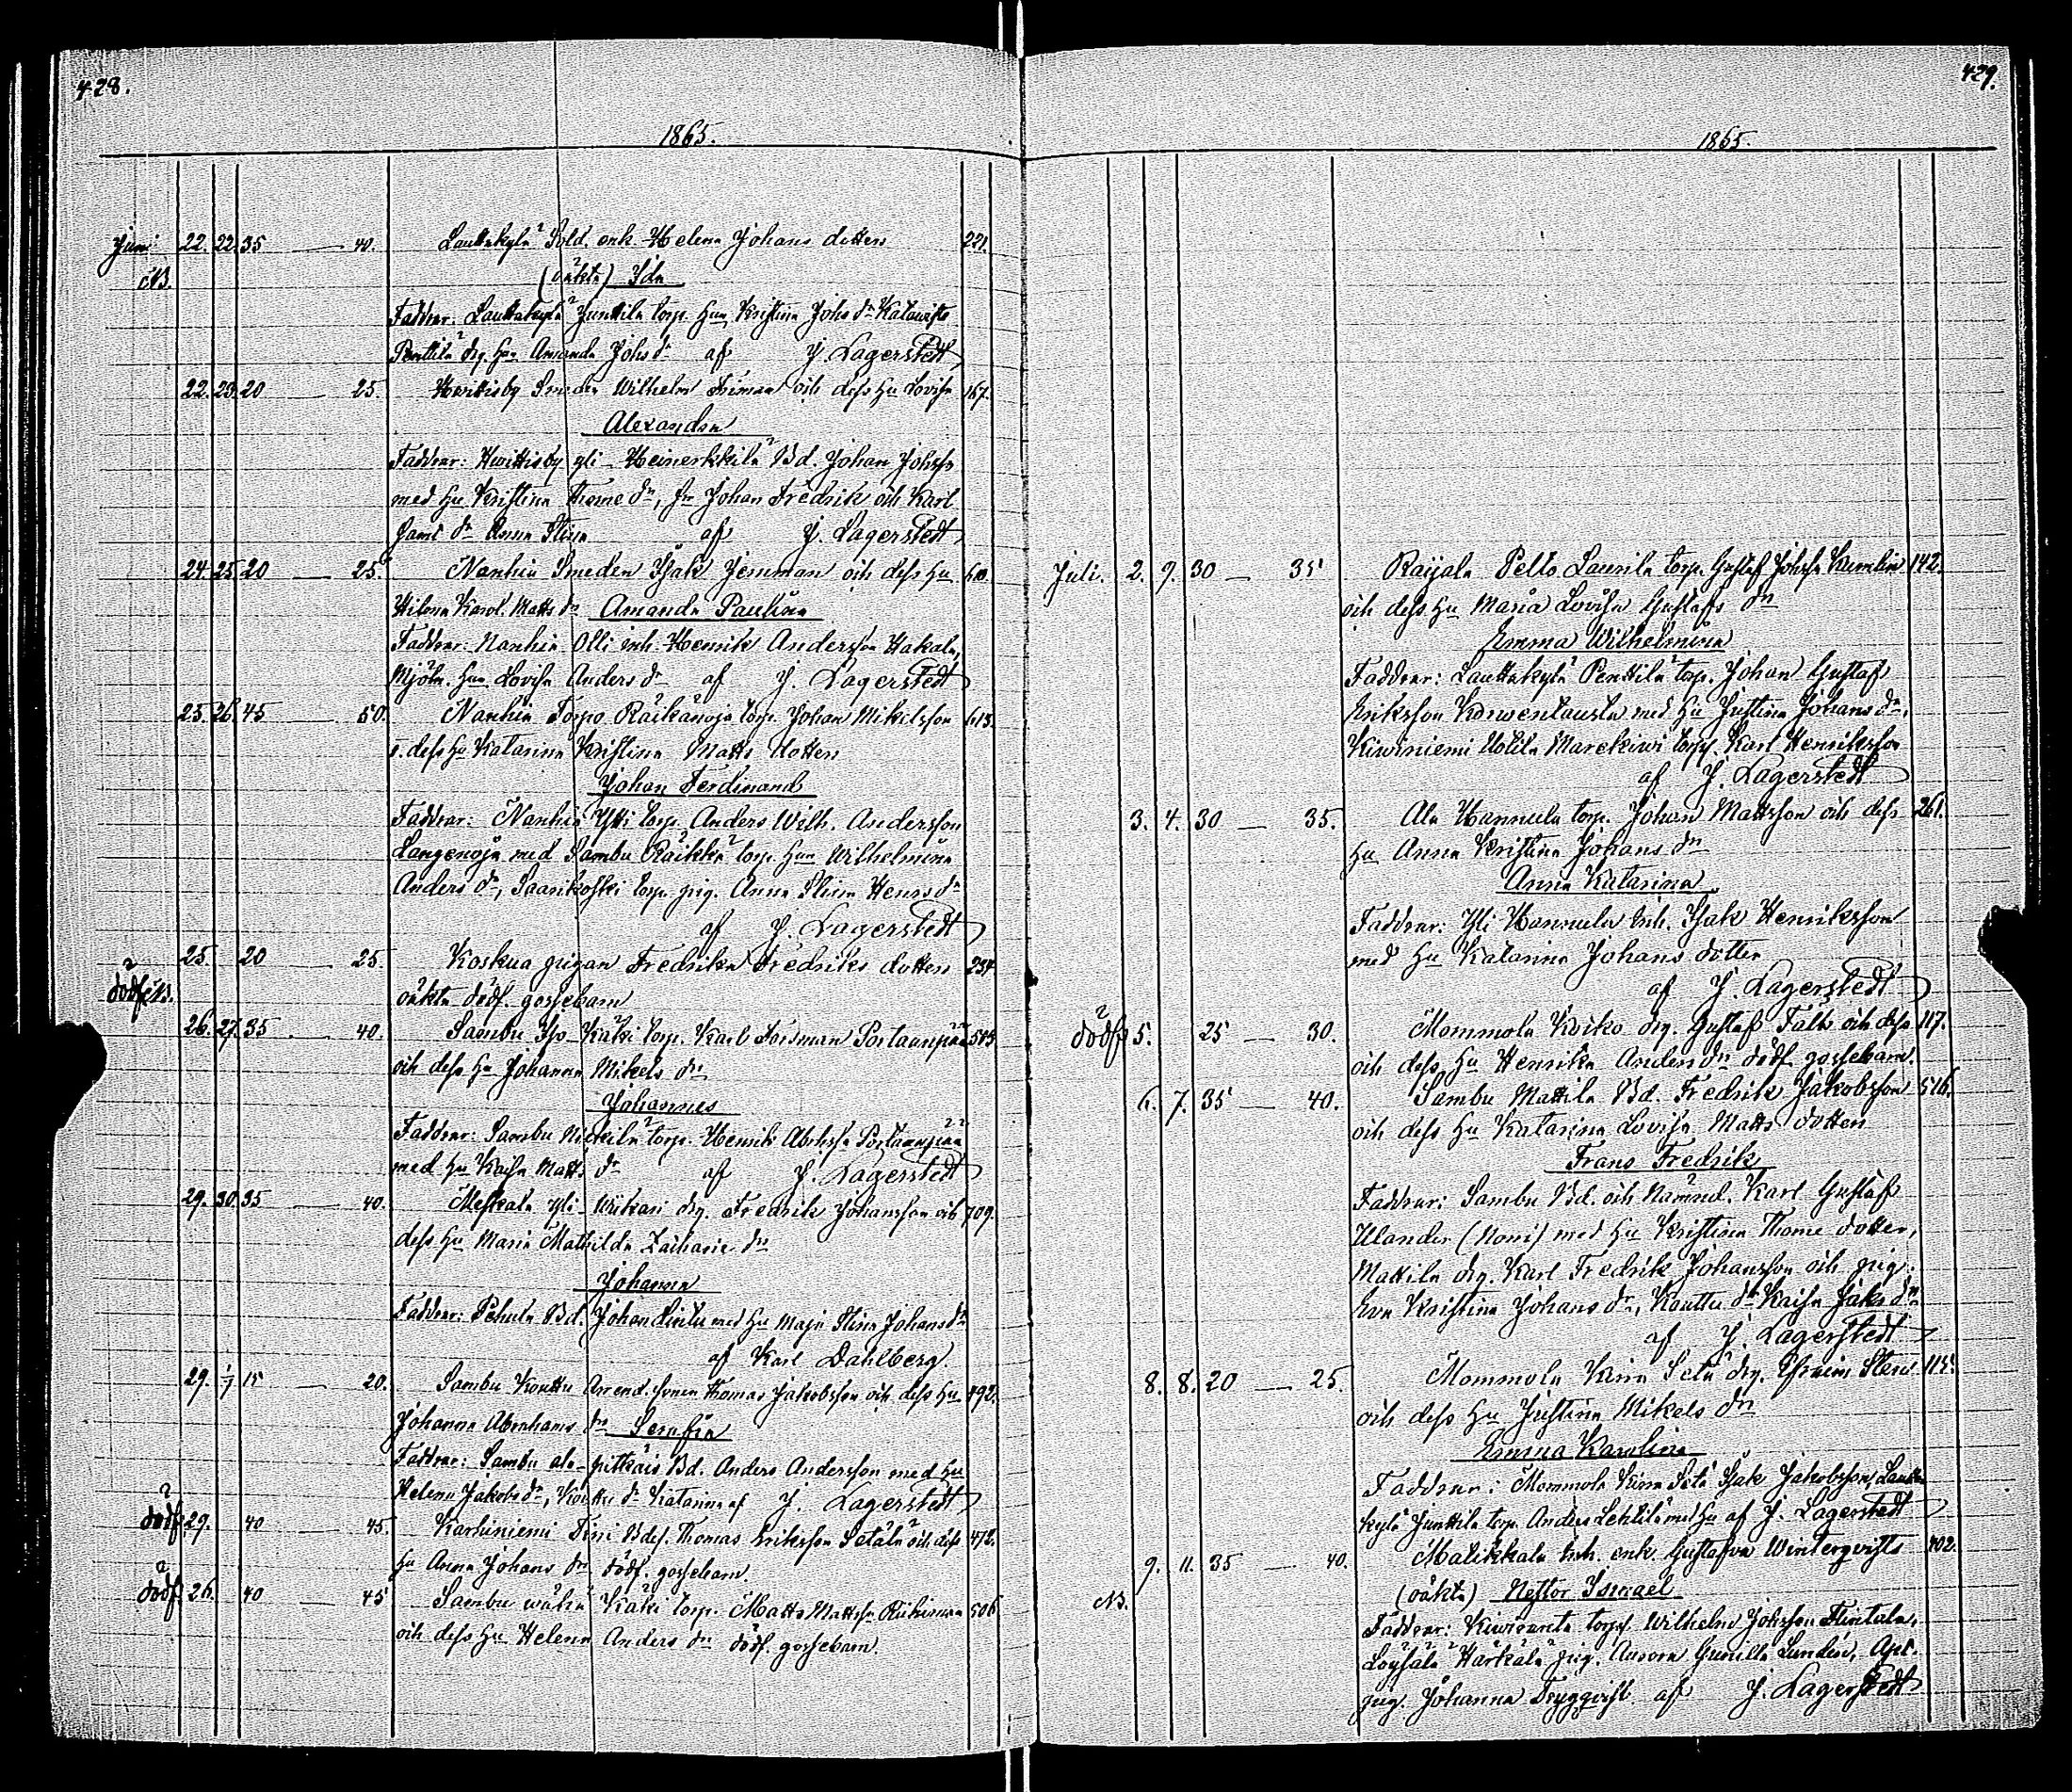 428.
1865.
Juni 22. 22. 35 — 40. Lauttakylä Sold. enk. Helena Johans dotter 221.
NB. (oäkta) Ida
Faddrar: Lauttakylä Junttila torp. Hun Kristina Johs dr
Penttilä drg. Hun Amanda Johs dr af J. Lagerstedt
22. 23. 20 — 25. Smeden Wilhelm och dess Hu Lovisa 167.
Alexandra
Faddrar: Hvittisby yli Heinerkkilä Bd. Johan Johsss
med Hu Kristina Thome dr, Johan Fredrik och Karl
dr Anna Stina af J. Lagerstedt
24. 25. 20 — 25. Nanhia Smeden Isak och dess Hu
Karol. Matts dr Amanda Paulina
Faddrar: Nanhia Olli inh. Henrik Andersson Hakala,
Mjöln. Hun Lovisa Anders dr af J. Lagerstedt
25. 26. 45 — 50. Nanhia Torpo Räikänoja torp. Johan Mikelsson 613.
o. dess Hu Katarina Kristina Matts dotter
Johan Ferdinand
Faddrar: Nanhia torp. Anders Wilh. Andersson
med Sambu Räikkä torp. Hun Wilhelmina
Anders dr, Saarikoski torp. pig. Anna Stina Henrs dr
af J. Lagerstedt
25. 20 — 25. Koskua pigan Fredrika Fredriks dotter 234.
dödf. NB. oäkta dödf. gossebarn
26. 27. 35 — 40. Sambu Iso-Käki torp. Karl Forsman Portaanpää 505
och dess Hu Johanna Mikels dr
Johannes
Faddrar: Sambu torp. Henrik Portaanpää
med Hu Kaisa Matts dr af J. Lagerstedt
29. 30. 35 — 40. Meskala Yli-Wiikari drg. Fredrik Johansson och 709.
dess Hu Maria Mathilda Zacharie dr
Johanna
Faddrar: Pehula Bd. Johan med Hu Maja Stina Johans dr
af Karl Dahlberg.
29. 1/7 15 — 20. Sambu Kouttu Arrend. sonen Thomas Jakobsson och dess Hu 492.
Johanna Abrahams dr Serafia
Faddrar: Sambu ala-pitkäis Bd. Anders Andersson med Hu
Helena Jakobs dr, Kouttu dr Katarina af J. Lagerstedt
dödf. 29. 40 — 45. Karhiniemi Bdes. Thomas Eriksson Setälä och dess 472.
Hu Anna Johans dr dödf. gossebarn.
dödf. 26. 40 — 45 Sambu wähä Käki torp. Matts Mattsn 506
och dess Hu Helena Anders dr dödf. gossebarn.
429.
1865.
Juli. 2. 9. 30 — 35 Raijala Pello Laurila torp. Gustaf Johssn Kumlin 142.
och dess Hu Maria Lovisa Gustafs dr
Emma Wilhelmina
Faddrar: Lauttakylä Penttilä torp. Johan Gustaf
Eriksson Korwentausta med Hu Justina Johans dr,
Kiwiniemi Uotila torp. Karl Henriksson
af J. Lagerstedt
3. 4. 30 — 35. Ala Hannula torp. Johan Mattsson och dess 261.
Hu Anna Kristina Johans dr
Anna Katarina
Faddrar: Yli Hannula inh. Isak Henriksson
med Hu Katarina Johans dotter
af J. Lagerstedt
dödf 5. 25 — 30. Mommola Kviko drg. Gustaf Falk och dess 117.
och dess Hu Henrika Anders dr dödf. gossebarn.
6. 7. 35 — 40. Sambu Mattila Bd. Fredrik Jakobsson 516.
och dess Hu Katarina Lovisa Matts dotter
Frans Fredrik
Faddrar: Sambu Bd. och Nämnd. Karl Gustaf
Ulander (Noni) med Hu Kristina Thome dotter,
Mattila drg. Karl Fredrik Johansson och pig.
Eva Kristina Johans dr, Kouttu dr Kaisa Jaks dr
af J. Lagerstedt
8. 8. 20 — 25. Mommola drg. Efraim Sten 115.
och dess Hu Justina Mikels dr
Emma Karolina
Faddrar: Mommola Isak Jakobsson, Lautta
kylä Junttila torp. Anders Lehtilä med Hu af J. Lagerstedt
9. 11. 35 — 40. Matikkala Inh. enk. Gustafva Winterqvists 402.
NB. (oäkta) Nestor Ismael
Faddrar: torp. Wilhelm Johsson
Härkälä pig. Aurora Gunilla Lundén,
pig. Johanna Tryggqvist af J. Lagerstedt